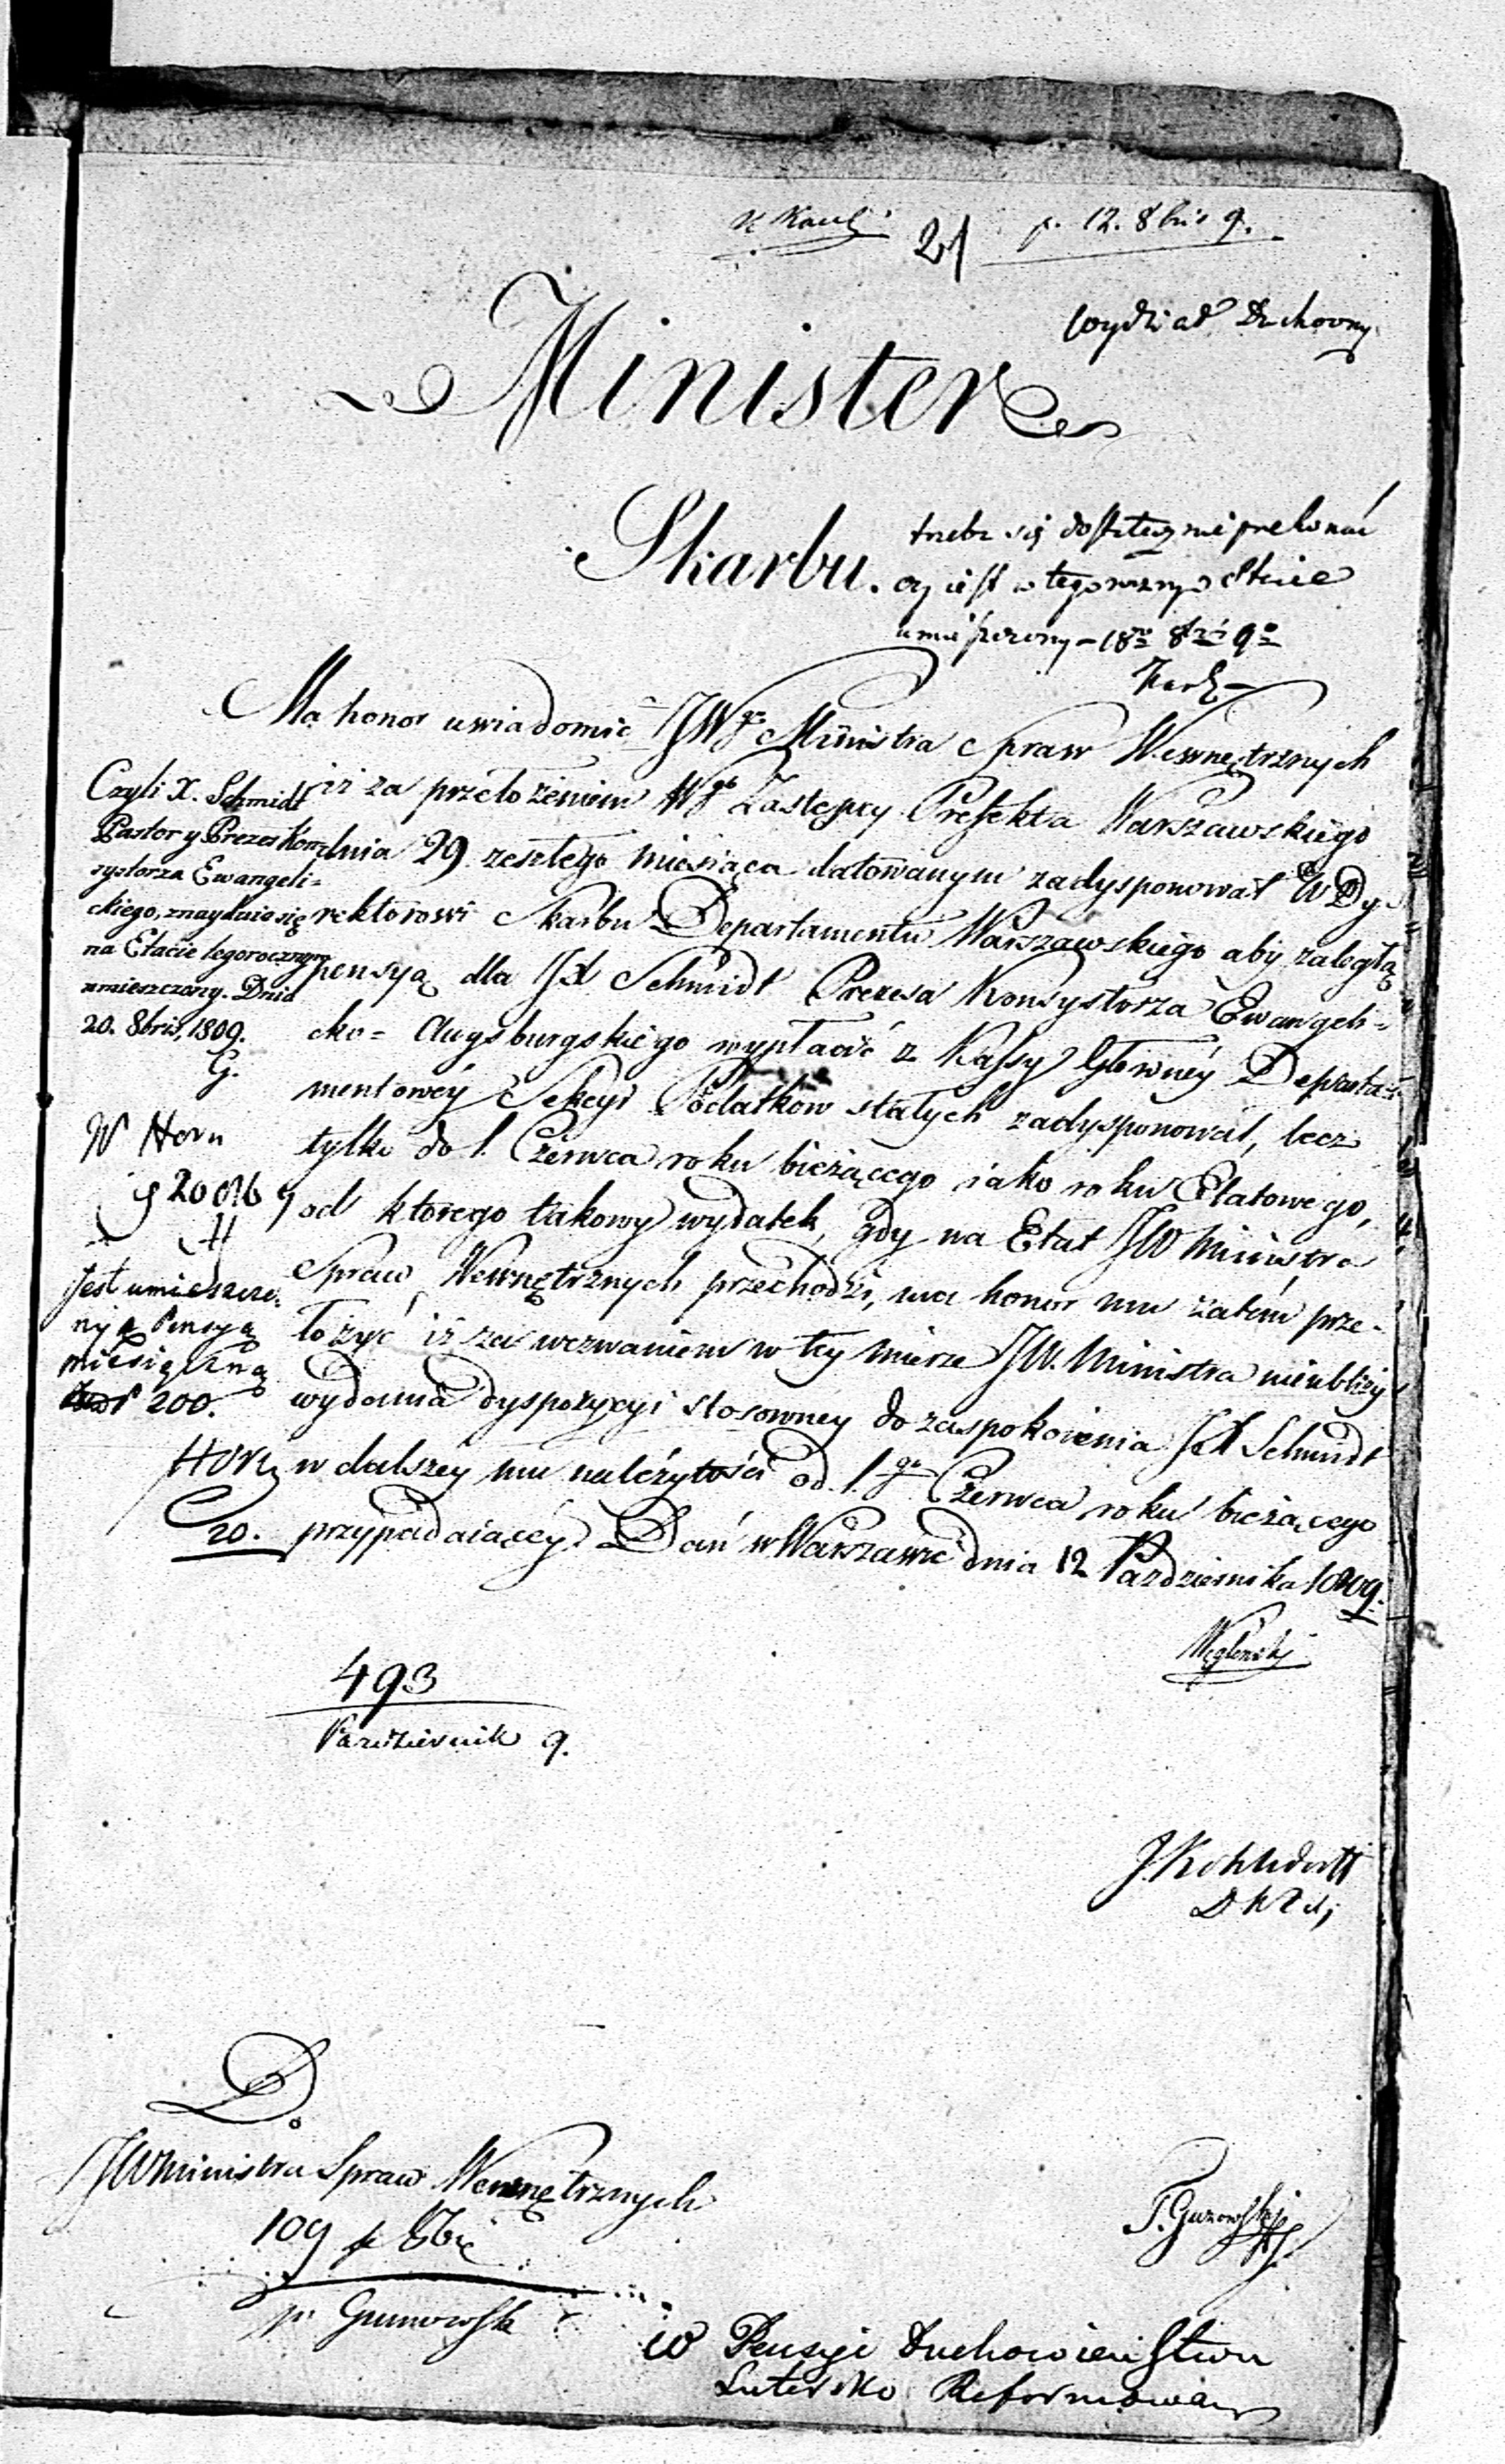 21 p. 12. 8bris 9.
Wydział Duchowny
Minister
Skarbu.
trzeba się dostatecznie przekonać
czy iest w tegorocznym Etacie
umieszczony - 18go 8bris 9o
Ma honor uwiadomić JWgo Ministra Spraw Wewnętrznych
iż za przełożeniem Wgo Zastępcy Prefekta Warszawskiego
dnia 29 zeszłego miesiąca datowanym zadysponował W Dy-
rektorowi Skarbu Departamentu Warszawskiego aby zaległą
pensyą dla JX Schmidt Prezesa Konsystorza Ewangeli-
cko = Augsburgskiego wypłacić z Kassy Głowney Departa-
mentowey Sekcyi Podatkow stałych zadysponował, lecz
tylko do 1. Czerwca roku bieżącego iako roku Etatowego,
od ktorego takowy wydatek, gdy na Etat JW Ministra
Spraw Wewnętrznych przechodzi, ma honor mu zatém prze-
łożyć iż za wezwaniem w tey mierze JW. Ministra nieubliży
wydania dyspozycyi stosowney do zaspokoienia JX Schmidt
w dalszey mu należytości od 1.go Czerwca roku bieżącego
przypadaiącey. Dań w Warszawie dnia 12 Października 1809.
Węgleński
Czyli X. Schmidt
Pastor y Prezes Kon-
systorza Ewangeli=
ckiego, znayduie się
na Etacie tegorocznym
umieszczony. Dnia
20. 8bris, 1809.
G.
W Horn
20 8b 9
H
Jest umieszczo-
ny z Pensyą
miesięczną
200.
Horn
20.
493
Październik 9.
D.
JW Ministra Spraw Wewnętrznych
109
T. Guzowski
w Pensyi Duchowieństwu
Lutersko Reformowan